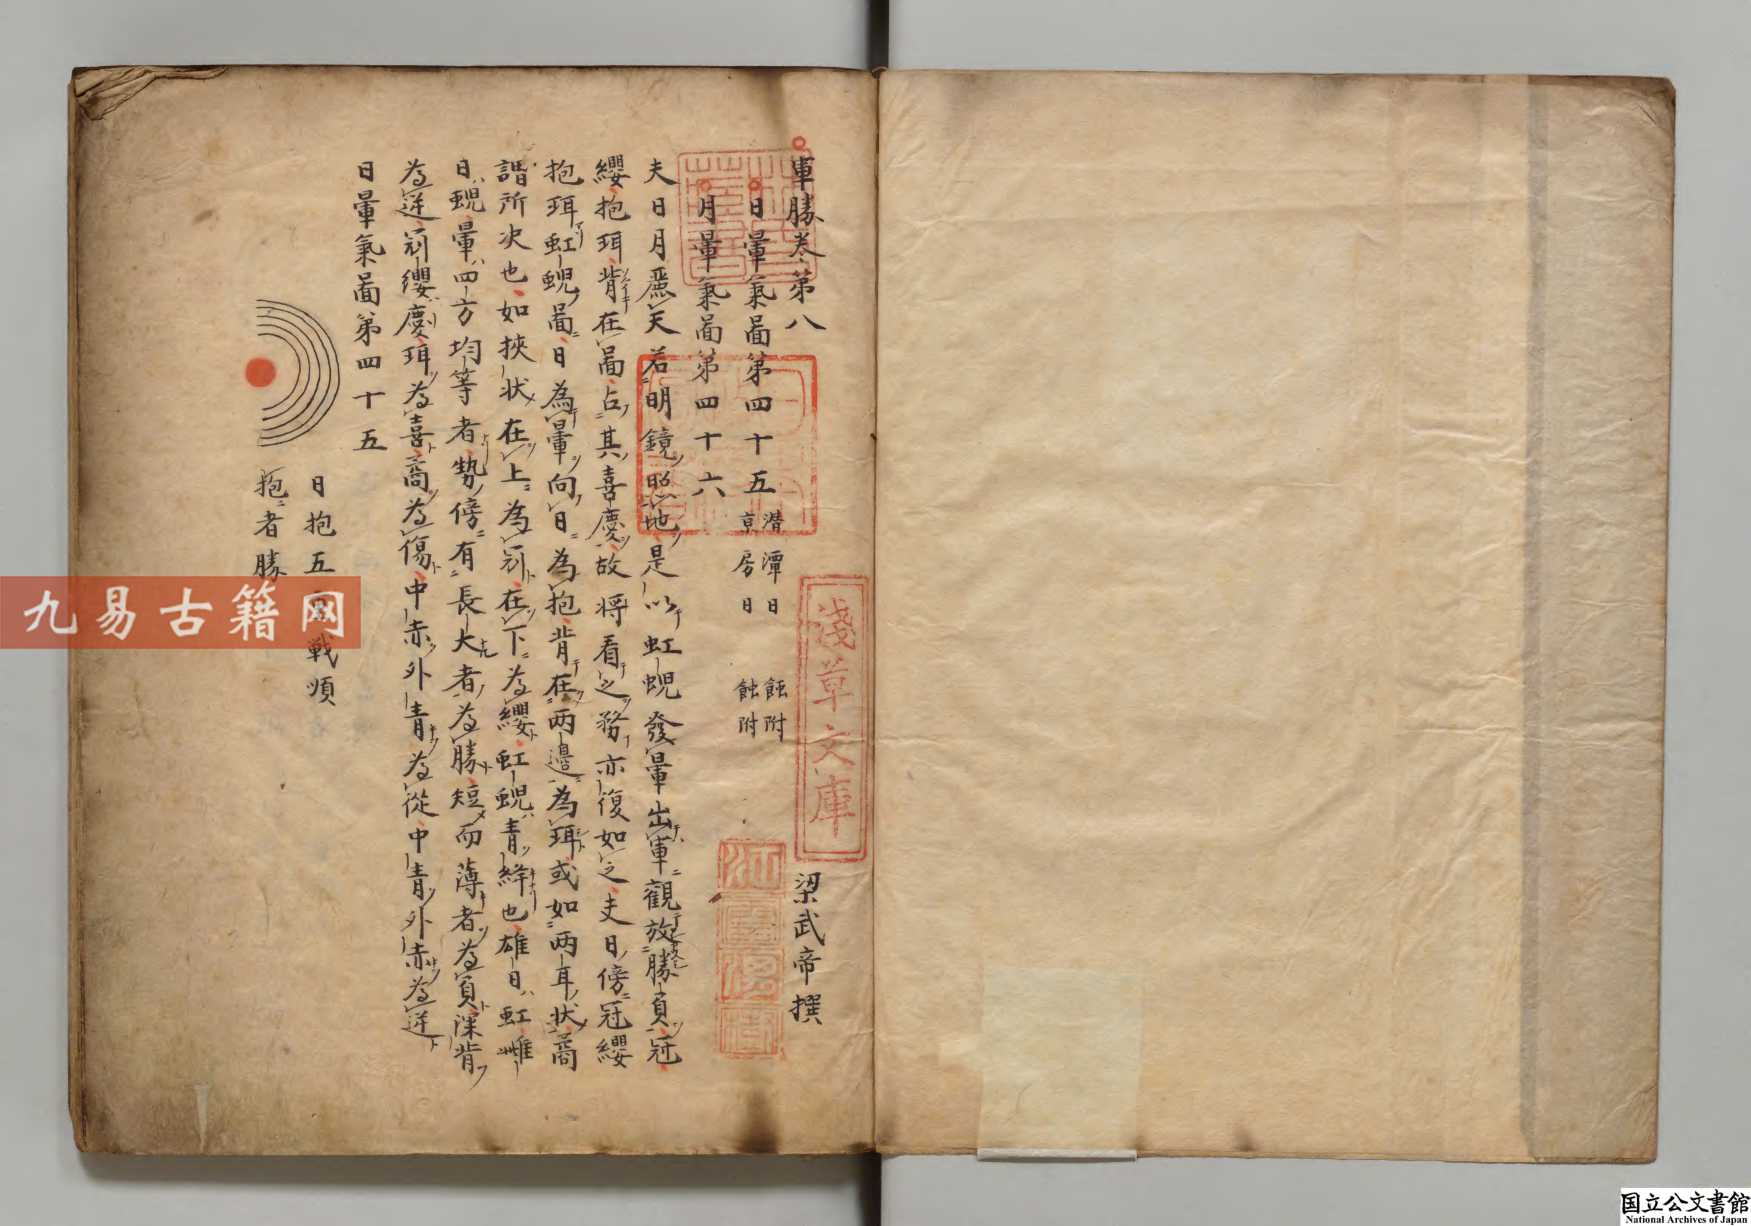 軍勝卷第八 梁武帝撰
日暈氣啚第四十五 潜潭日 蝕附
京房日 蝕附
月暈氣啚第四十六
夫日月麗天若明鏡照地是以虹蜺發暈出軍觀放勝負冠
纓抱珥背在啚占其喜慶故将看之務亦復如之夫日傍冠纓
抱珥虹蜺啚日為暈向日為抱背在兩邊為珥或如兩耳状啇
諧所决也如挾状在上為冠在下為纓虹蜺青絳也雄曰虹雌
曰蜺暈四方均等者勢傍有長大者為勝短而薄者為負深背
為逆冠纓慶珥為喜啇為傷中赤外青為從中青外赤為逆
日暈氣啚第四十五
日抱五 戦順
抱者勝
淺草文庫
九易古籍网
国立公文書館
National Archives of Japan